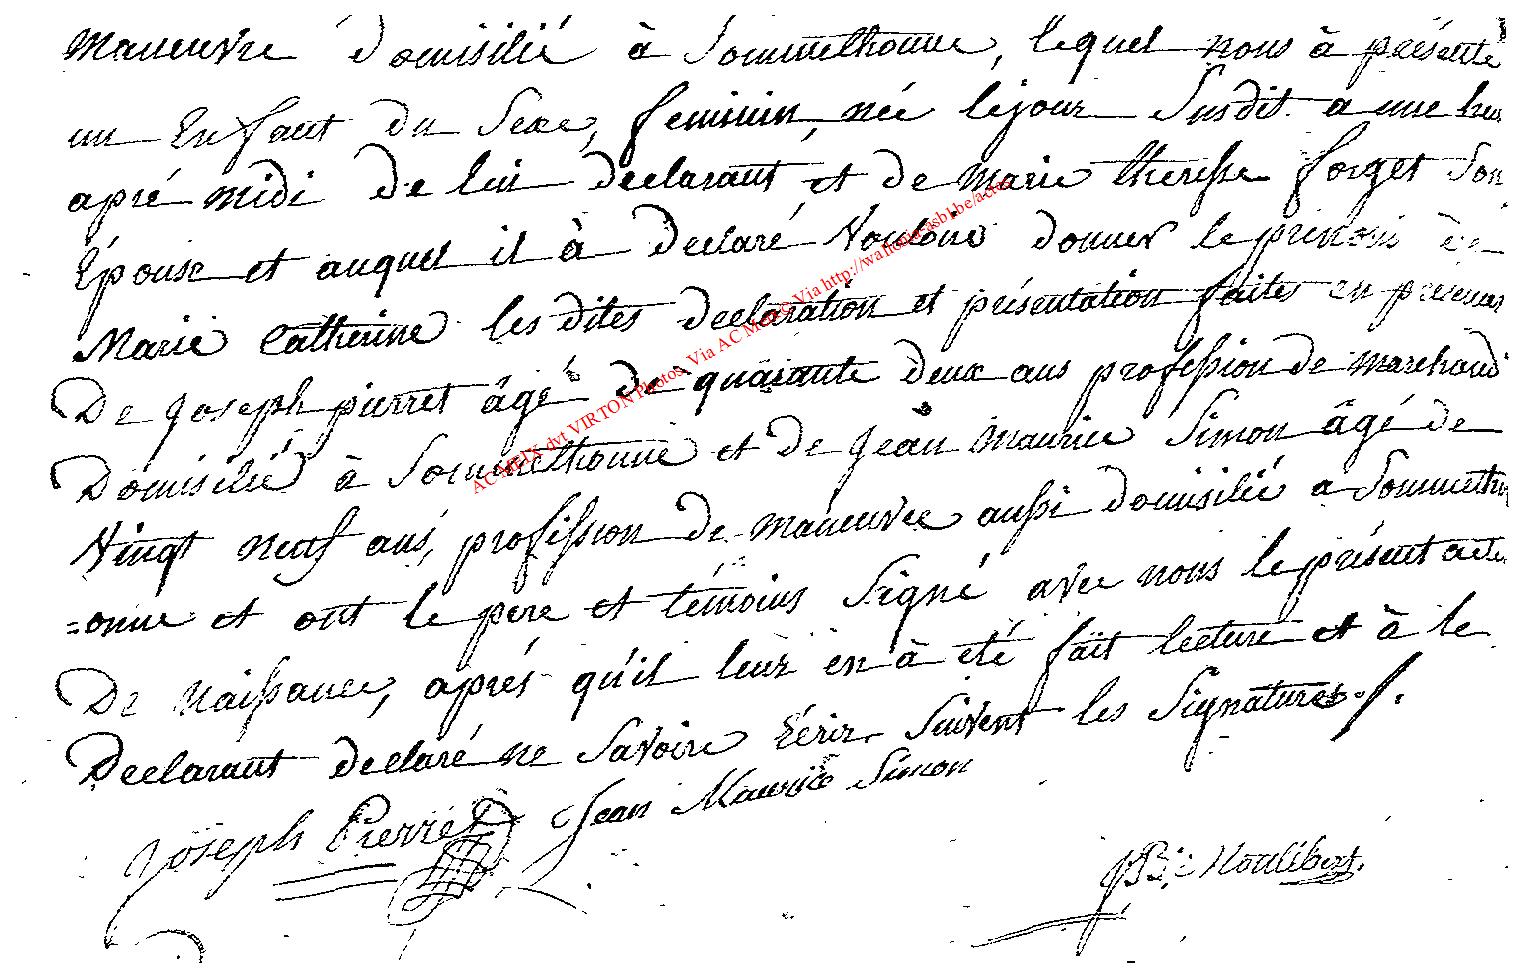 Maneuvre domisilié à Sommelhonne, lequel nous à présenté
un Enfant du Sexe, feminin, née lejour Susdit a une heu
apré midi de lui declarant et de Marie theresse forget Son
Épouse et auquel il à declaré Vouloire donner le prenom de
Marie Catherine les dites declaration et présentation faites en présence
De joseph pierret âgé de quarante deux ans profession de marchand
Domisilié à Sommethonne et de jean maurice Simon âgé de
Vingt neuf ans, profession de maneuvre aussi domisilié a Sommeth
=onne et ont le pere et témoins Signé avec nous le présent acte
De Naissance, aprés qu'il leur en à été fait lecture et à le
Declarant declaré ne Savoire Ecrir Suivent les Signatures./.
Joseph Pierret Jean Maurice Simon
AC MEIX dvt VIRTON Photos Via AC Meix Via http://wallonia-asbl.be/actes